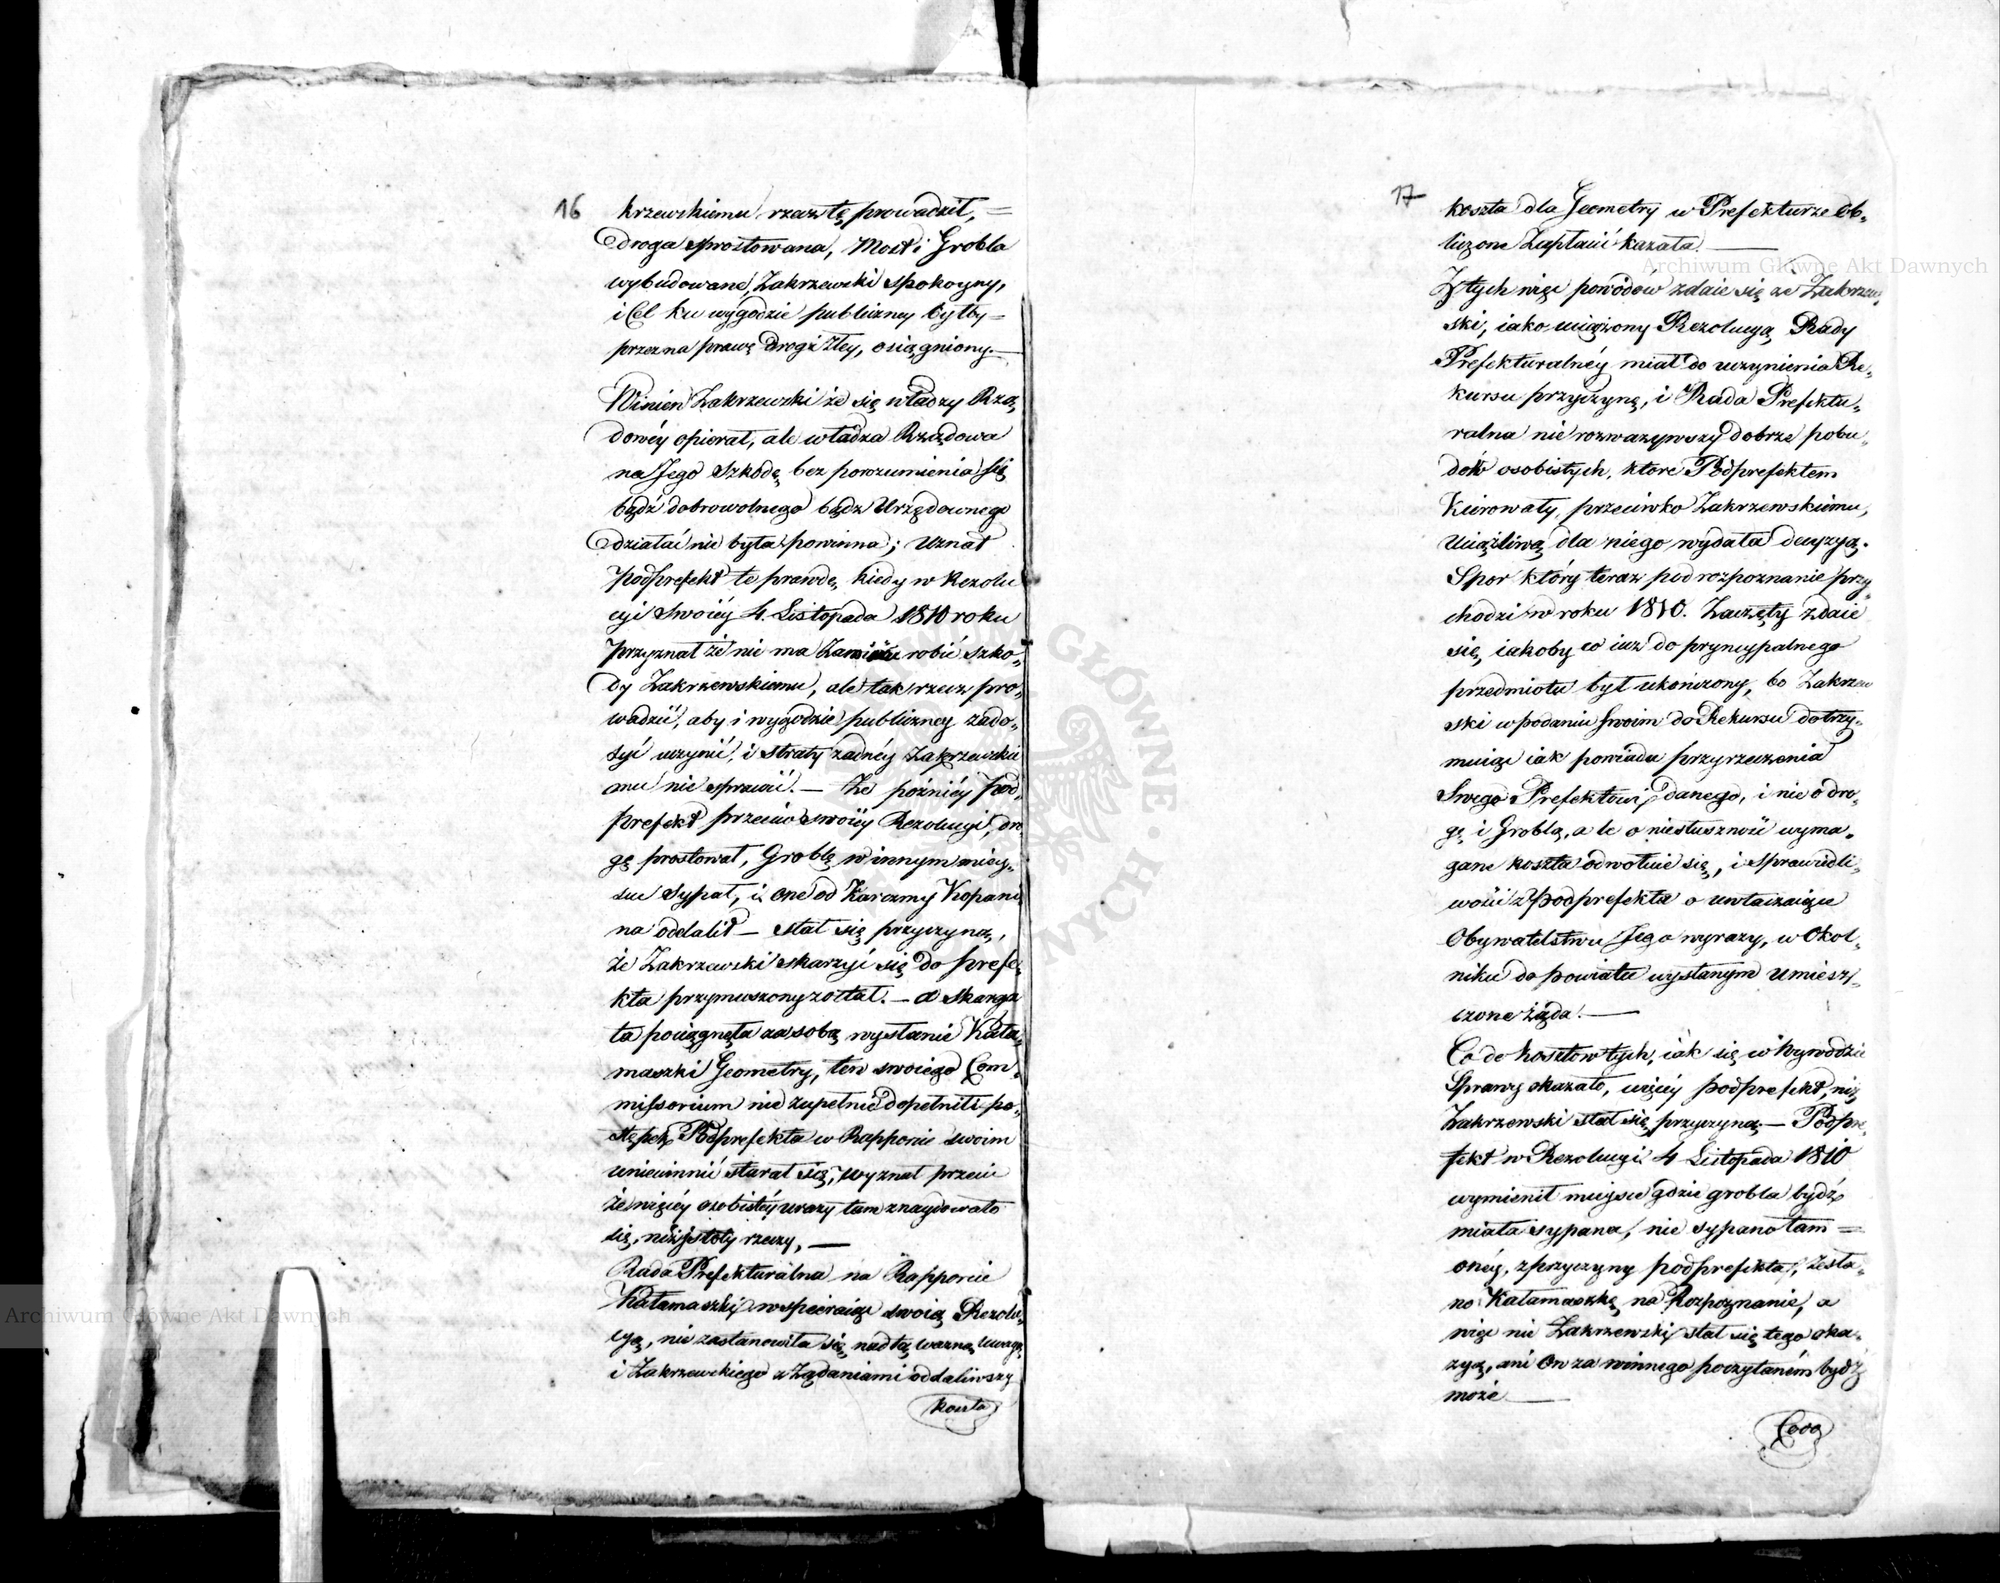 16
krzewskiemu rzecz tę prowadził, =
droga sprostowana, Most i Grobla
wybudowane, Zakrzewski spokoyny,
i Cel ku wygodzie publiczney byłby =
przez naprawę drogi złey, osiągniony. —
Winien Zakrzewski że się władzy Rzą„
dowéy opierał, ale władza Rządowa
na Jego Szkodę, bez porozumienia się
bądź dobrowolnego bądz Urzędownego
działać nie była powinna; Uznał
Podprefekt tę prawdę, kiedy w Rezolu
cyi Swoiéy 4. Listopada 1810 roku
Przyznał że nie ma Zamiaru robić szko„
dy Zakrzewskiemu, ale tak rzecz pro„
wadzić, aby i wygodzie publiczney zado„
syć uczynić, i straty żadnéy Zakrzewskie
mu nie sprawić. — Ze późniéy Pod„
prefekt przeciw swoiéy Rezolucyi, dro„
gę prostował, Groblę w innym miey„
scu Sypał, i one od Karczmy Kopani„
na oddalił — stał się przyczyną,
że Zakrzewski skarzyć się do Prefe„
kta przymuszony został. — a Skarga
ta pociągnęła za sobą wysłanie Kała„
maszki Geometry, ten swoiego Com„
missorium nie zupełnie dopełnił, po„
stępek Podprefekta w Rapporcie swoim
uniewinnić starał się, Wyznał przecie
że więcéy osobistéy urazy tam znaydowało
się, niż istoty rzeczy, —
Rada Prefekturalna na Rapporcie
Kałamaszki wspieraiąc swoią Rezolu„
cyą, nie zastanowiła się nad tą ważną Uwagą,
i Zakrzewskiego z Ządaniami oddaliwszy
koszta
17
koszta dla Geometry w Prefekturze Ob„
liczone Zapłacić kazała. —
Z tych więc powodów zdaie się ze Zakrzew„
ski, iako uciążony Rezolucyą Rady
Prefekturalnéy miał do uczynienia Re„
kursu przyczynę, i Rada Prefektu„
ralna nie rozwazywszy dobrze pobu„
dek osobistych, które Podprefektem
Kierowały, przeciwko Zakrzewskiemu,
Uciążliwą dla niego wydała decyzyą.
Spor który teraz pod rozpoznanie przy„
chodzi w roku 1810. Zaczęty zdaie
się, iakoby co iuz do pryncypalnego
przedmiotu był ukończony, bo Zakrzew
ski w podaniu swoim do Rekursu dotrzy„
muiąc iak powiada przyrzeczenia
Swego Prefektowi danego, i nie o dro„
gę i Groblą, ale o niesłuszność wyma„
gane koszta odwołuie się, i sprawiedli„
wości z Podprefekta o uwłaczaiące
Obywatelstwu Jego wyrazy, w Okol„
niku do powiatu wysłanym Umiesz„
czone żąda. —
Co do kosztow tych, iak się w Wywodzie
Sprawy okazało, więcéy Podprefekt, niż
Zakrzewski stał się przyczyną — Podpre„
fekt w Rezolucyi 4 Listopada 1810
wymienił mieysce gdzie grobla bydź
miała sypana, nie sypano tam =
onéy, z przyczyny podprefekta, zesła„
no Kałamaszkę na Rozpoznanie, a
więc nie Zakrzewski stał się tego oka„
zyą, ani On za winnego poczytaném bydź
może —